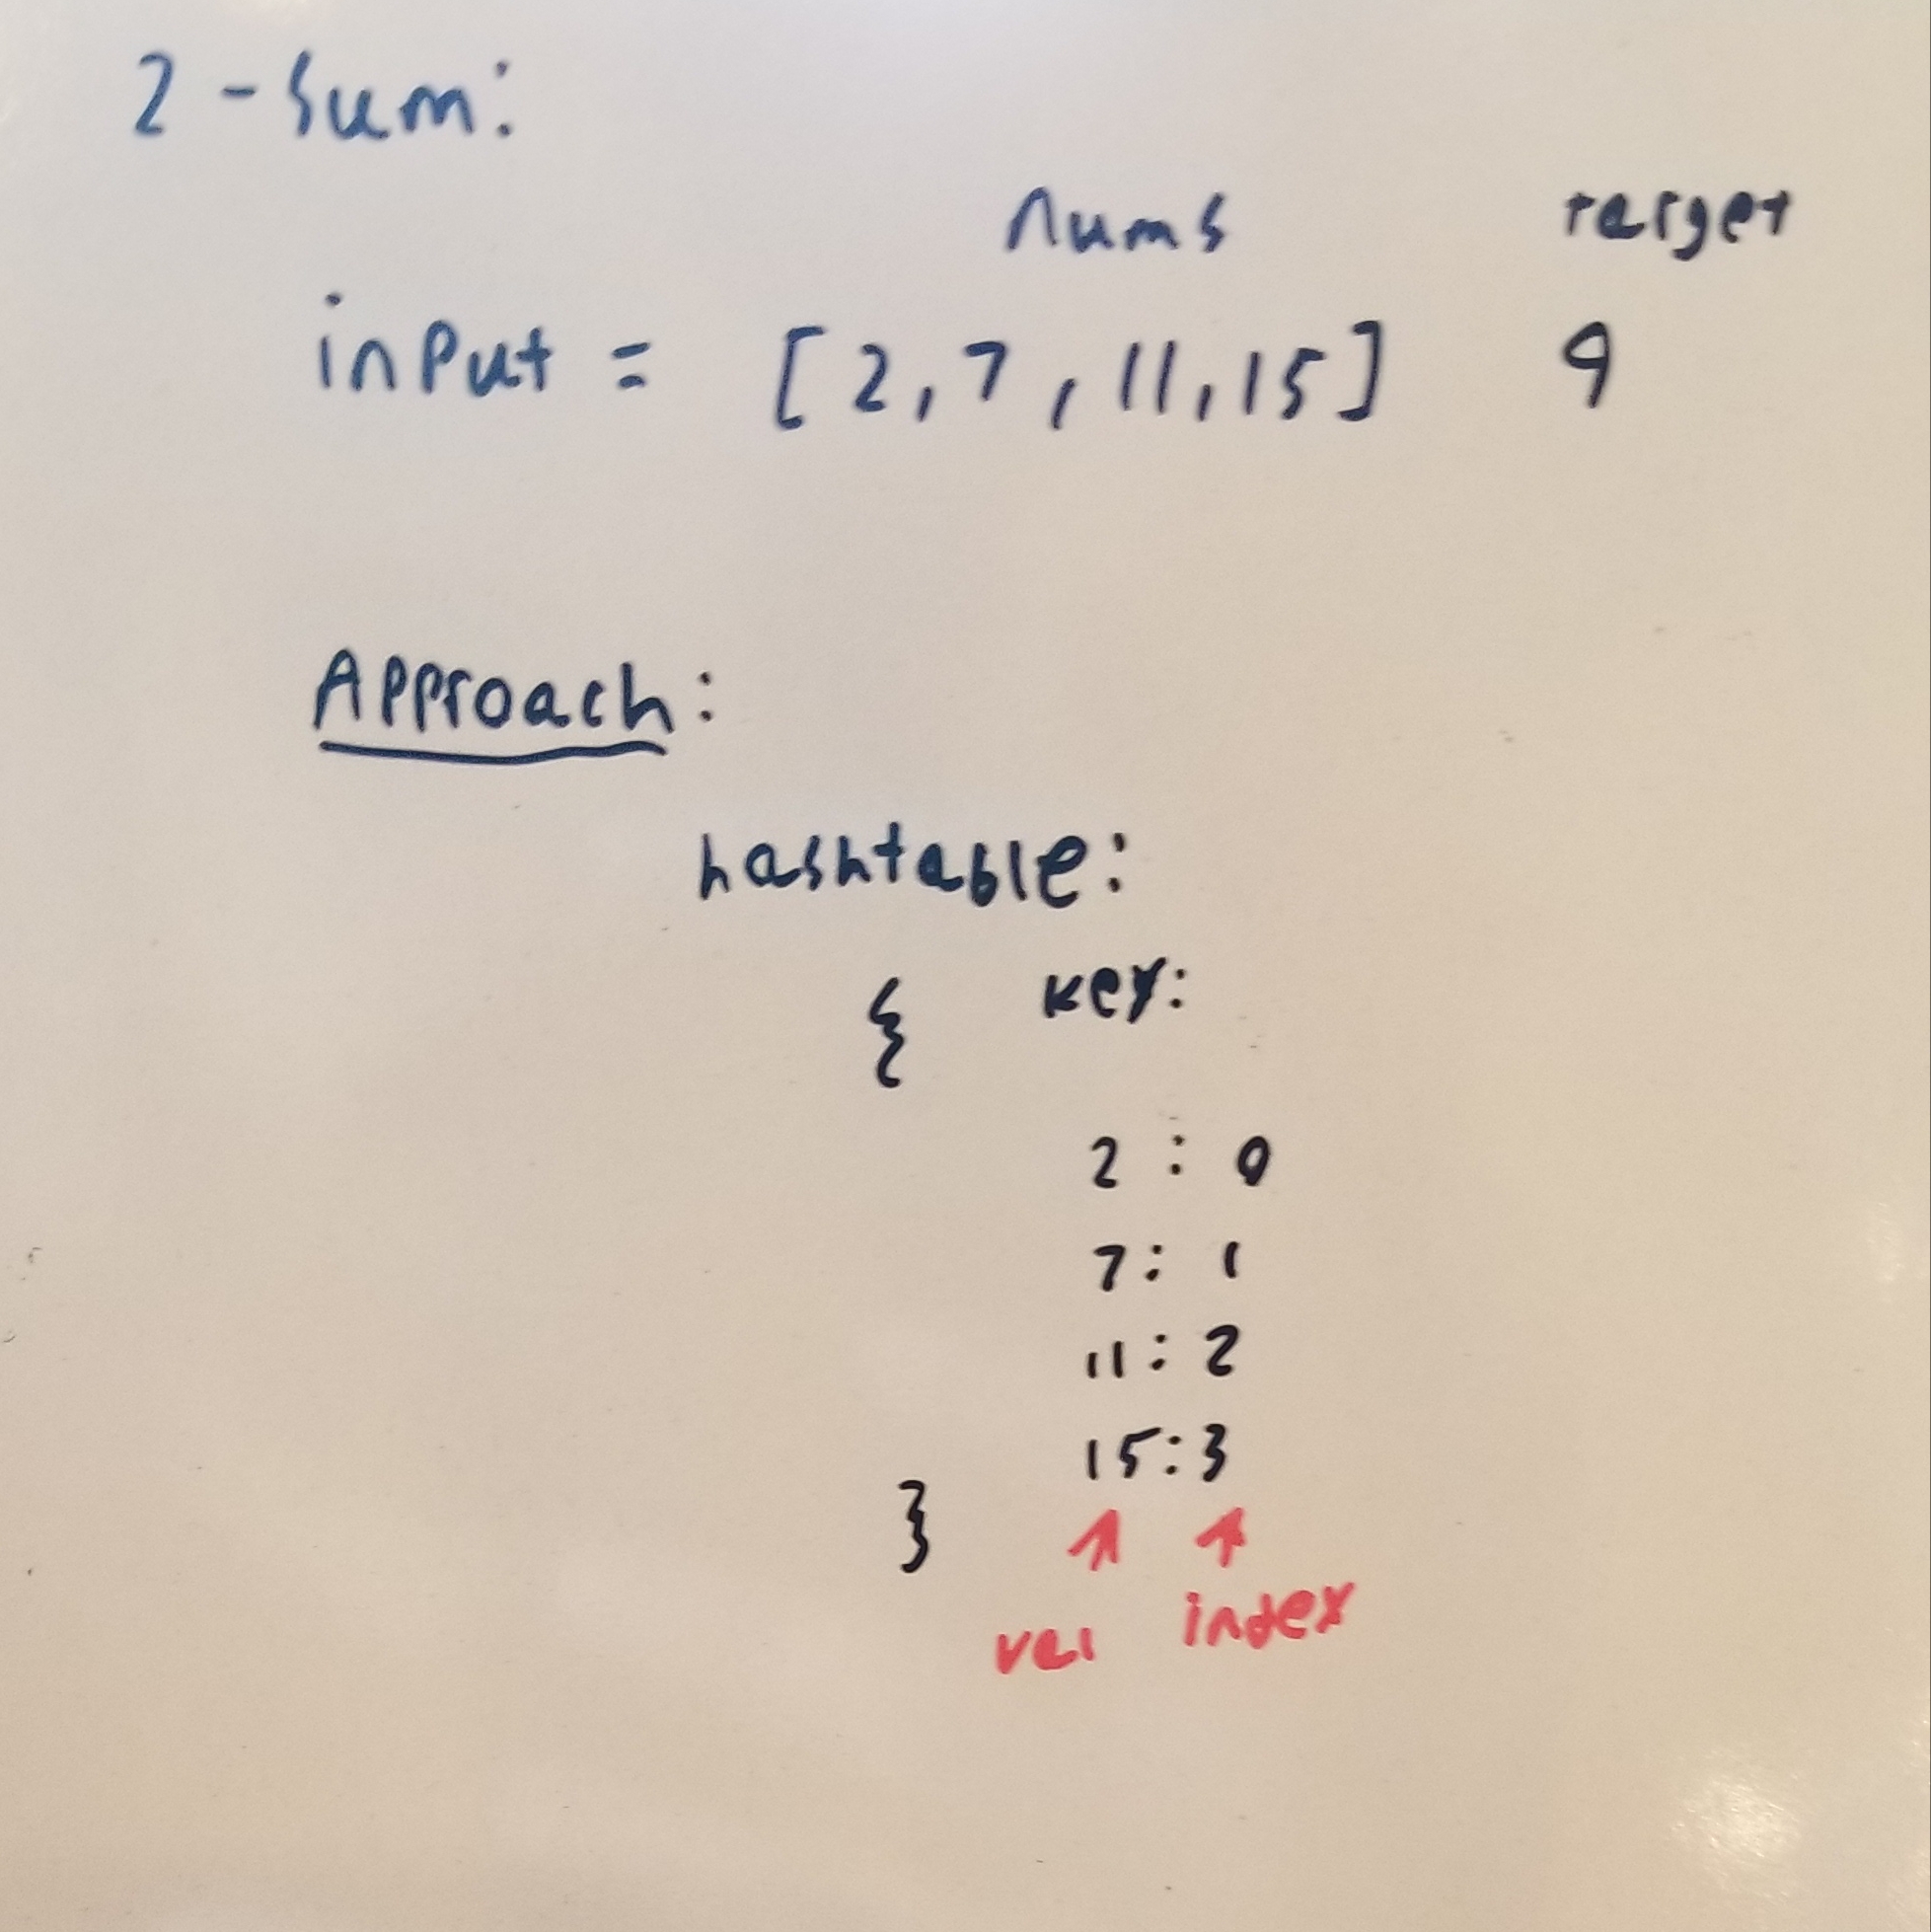 2 - Sum:
nums target
input = [2, 7, 11, 15] 9
Approach:
hashtable:
{ key:
2 : 0
7 : 1
11 : 2
15 : 3
}
val index